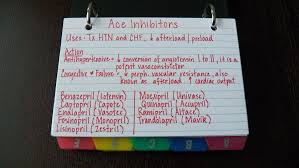 Ace Inhibitors
Uses: Tx HTN and CHF, ↓ afterload / preload
Action
Antihypertensive = ↓ conversion of angiotensin I to II, it is a
potent vasoconstrictor
Congestive ♥ Failure = ↓ periph. vascular resistance, also
known as afterload, ↑ cardiac output
Benazepril (Lotensin)
Captopril (Capoten)
Enalapril (Vasotec)
Fosinopril (Monopril)
Lisinopril (Zestril)
Moexipril (Univasc)
Quinapril (Accupril)
Ramipril (Altace)
Trandolapril (Mavik)